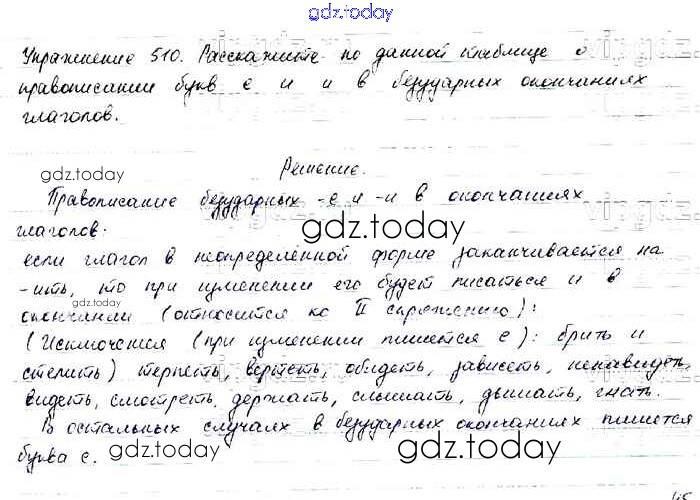 gdz.today
Упражнение 510. Расскажите по данной таблице о
правописании букв е и и в безударных окончаниях
глаголов.
gdz.today
Решение.
Правописание безударных -е и -и в окончаниях
глаголов.
gdz.today
если глагол в неопределённой форме заканчивается на
-ить, то при изменении его будет писаться и в
gdz.today
окончании (относится ко II спряжению):
(Исключения (при изменении пишется е): брить и
стелить) терпеть, вертеть, обидеть, зависеть, ненавидеть,
gdz.today
видеть, смотреть, держать, слышать, дышать, гнать.
В остальных случаях в безударных окончаниях пишется
буква е.
gdz.today
gdz.today